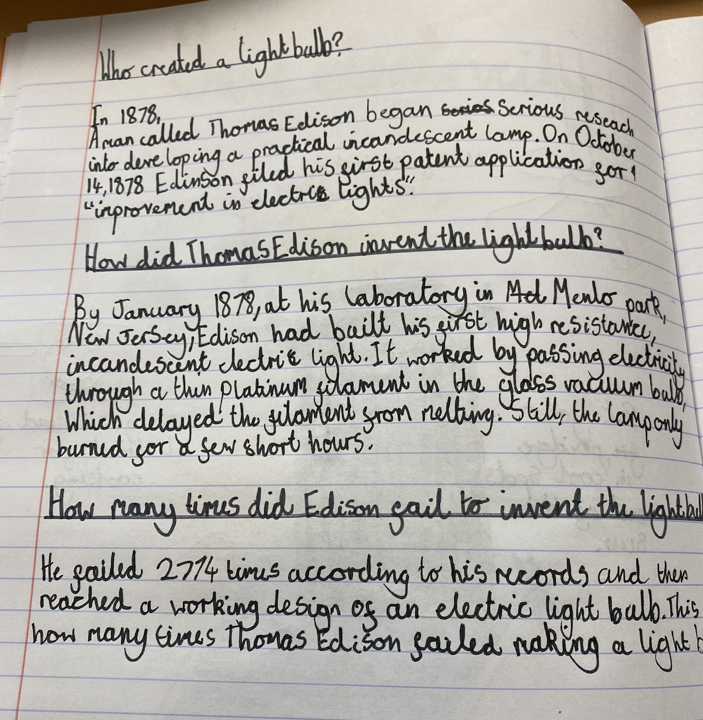 Who created a lightbulb?
In 1878,
A man called Thomas Edison began serios Serious reseach
into developing a practical incandescent lamp. On October
14,1878 Edinson filed his first patent application for
"inprovement in electric lights".
How did Thomas Edison invent the lightbulb?
By January 1878, at his laboratory in Menlo park,
New Jersey, Edison had built his first high resistance,
incandescent electric light. It worked by passing electricity
through a thin platinum filament in the glass vacuum bulb,
Which delayed the filament from melting. Still, the lamp only
burned for a few short hours.
How many times did Edison fail to invent the lightbul
He failed 2774 times according to his records and then
reached a working design of an electric light bulb. This
how many times Thomas Edison failed making a light b